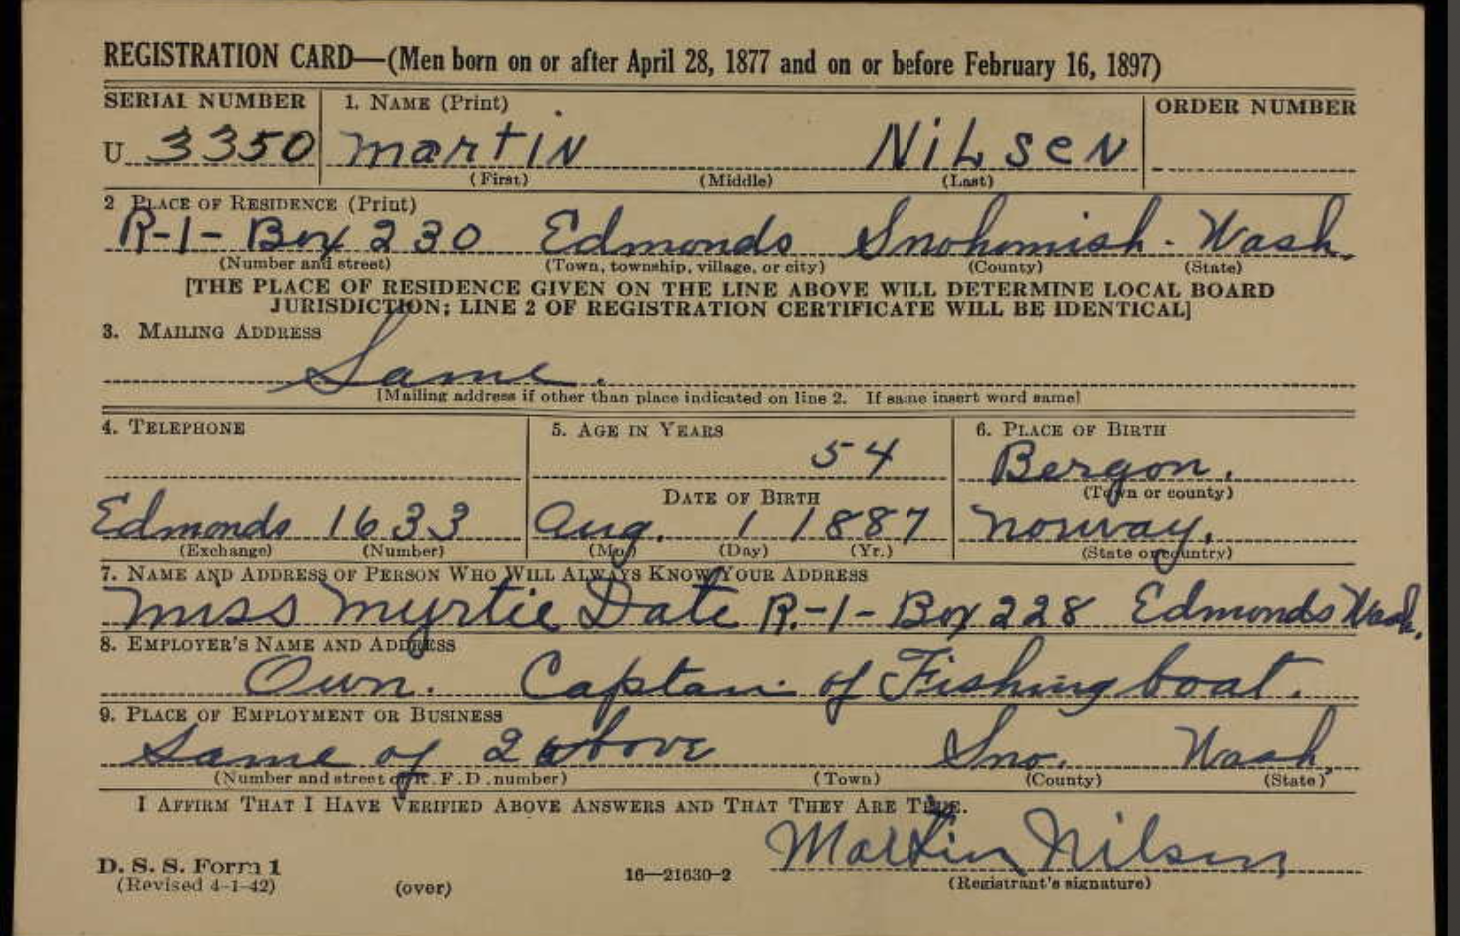 REGISTRATION CARD—(Men born on or after April 28, 1877 and on or before February 16, 1897)
SERIAL NUMBER 1. NAME (Print) ORDER NUMBER
U 3350 Martin NiLseN
(First) (Middle) (Last)
2 PLACE OF RESIDENCE (Print)
R-1- Box 230 Edmonds Snohomish - Wash.
(Number and street) (Town, township, village, or city) (County) (State)
[THE PLACE OF RESIDENCE GIVEN ON THE LINE ABOVE WILL DETERMINE LOCAL BOARD
JURISDICTION; LINE 2 OF REGISTRATION CERTIFICATE WILL BE IDENTICAL]
3. MAILING ADDRESS
Same.
[Mailing address if other than place indicated on line 2. If same insert word same]
4. TELEPHONE 5. AGE IN YEARS 6. PLACE OF BIRTH
54 Bergon.
DATE OF BIRTH (Town or county)
Edmonds 1633 Aug. 1 1887 Norway.
(Exchange) (Number) (Mo.) (Day) (Yr.) (State or country)
7. NAME AND ADDRESS OF PERSON WHO WILL ALWAYS KNOW YOUR ADDRESS
Miss Myrtie Date R.-1- Box 228 Edmonds Wash.
8. EMPLOYER'S NAME AND ADDRESS
Own. Captain of Fishing boat.
9. PLACE OF EMPLOYMENT OR BUSINESS
Same of 2 above Sno. Wash.
(Number and street or R. F. D. number) (Town) (County) (State)
I AFFIRM THAT I HAVE VERIFIED ABOVE ANSWERS AND THAT THEY ARE TRUE.
Martin Nilsen
D. S. S. Form 1
(Revised 4-1-42) (over) 16—21630-2 (Registrant's signature)